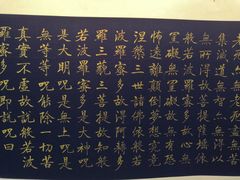 老死亦無老死盡無苦
集滅道無智亦無得以
無所得故菩提薩埵依
般若波羅蜜多故心無
罣礙無罣礙故無有恐
怖遠離顛倒夢想究竟
涅槃三世諸佛依般若
波羅蜜多故得阿耨多
羅三藐三菩提故知般
若波羅蜜多是大神咒
是大明咒是無上咒是
無等等咒能除一切苦
真實不虛故說般若波
羅蜜多咒即說咒曰